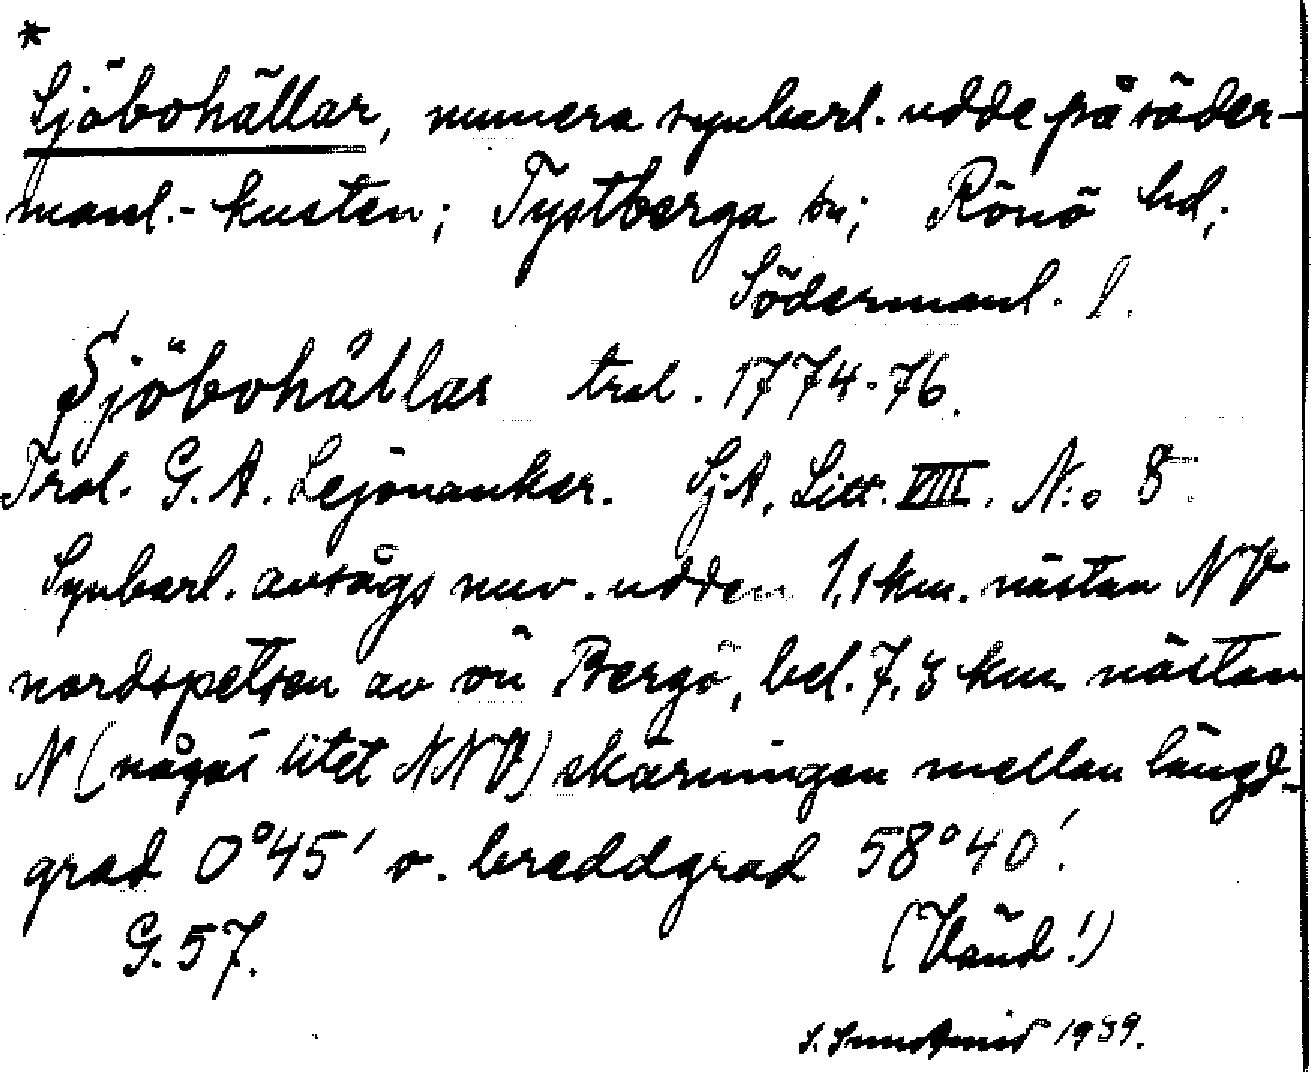 *
Sjöbohällar, numera synbarl. udde på söder-
manl.-kusten; Tystberga sn; Rönö hd;
Södermanl. l.
Sjöbohällar trol. 1774-76.
Trol. G. A. Lejonanker. Sj.A, Litt. VIII. N:o 8.
Synbarl. avsågs nuv. udden 1,1 km. nästan NV
nordspetsen av ön Bergö, bel. 7,3 km. nästan
N (något litet NNV) skärningen mellan längd-
grad 0°45' o. breddgrad 58°40'.
G. 57. (Vänd!)
S. Sundqvist 1939.